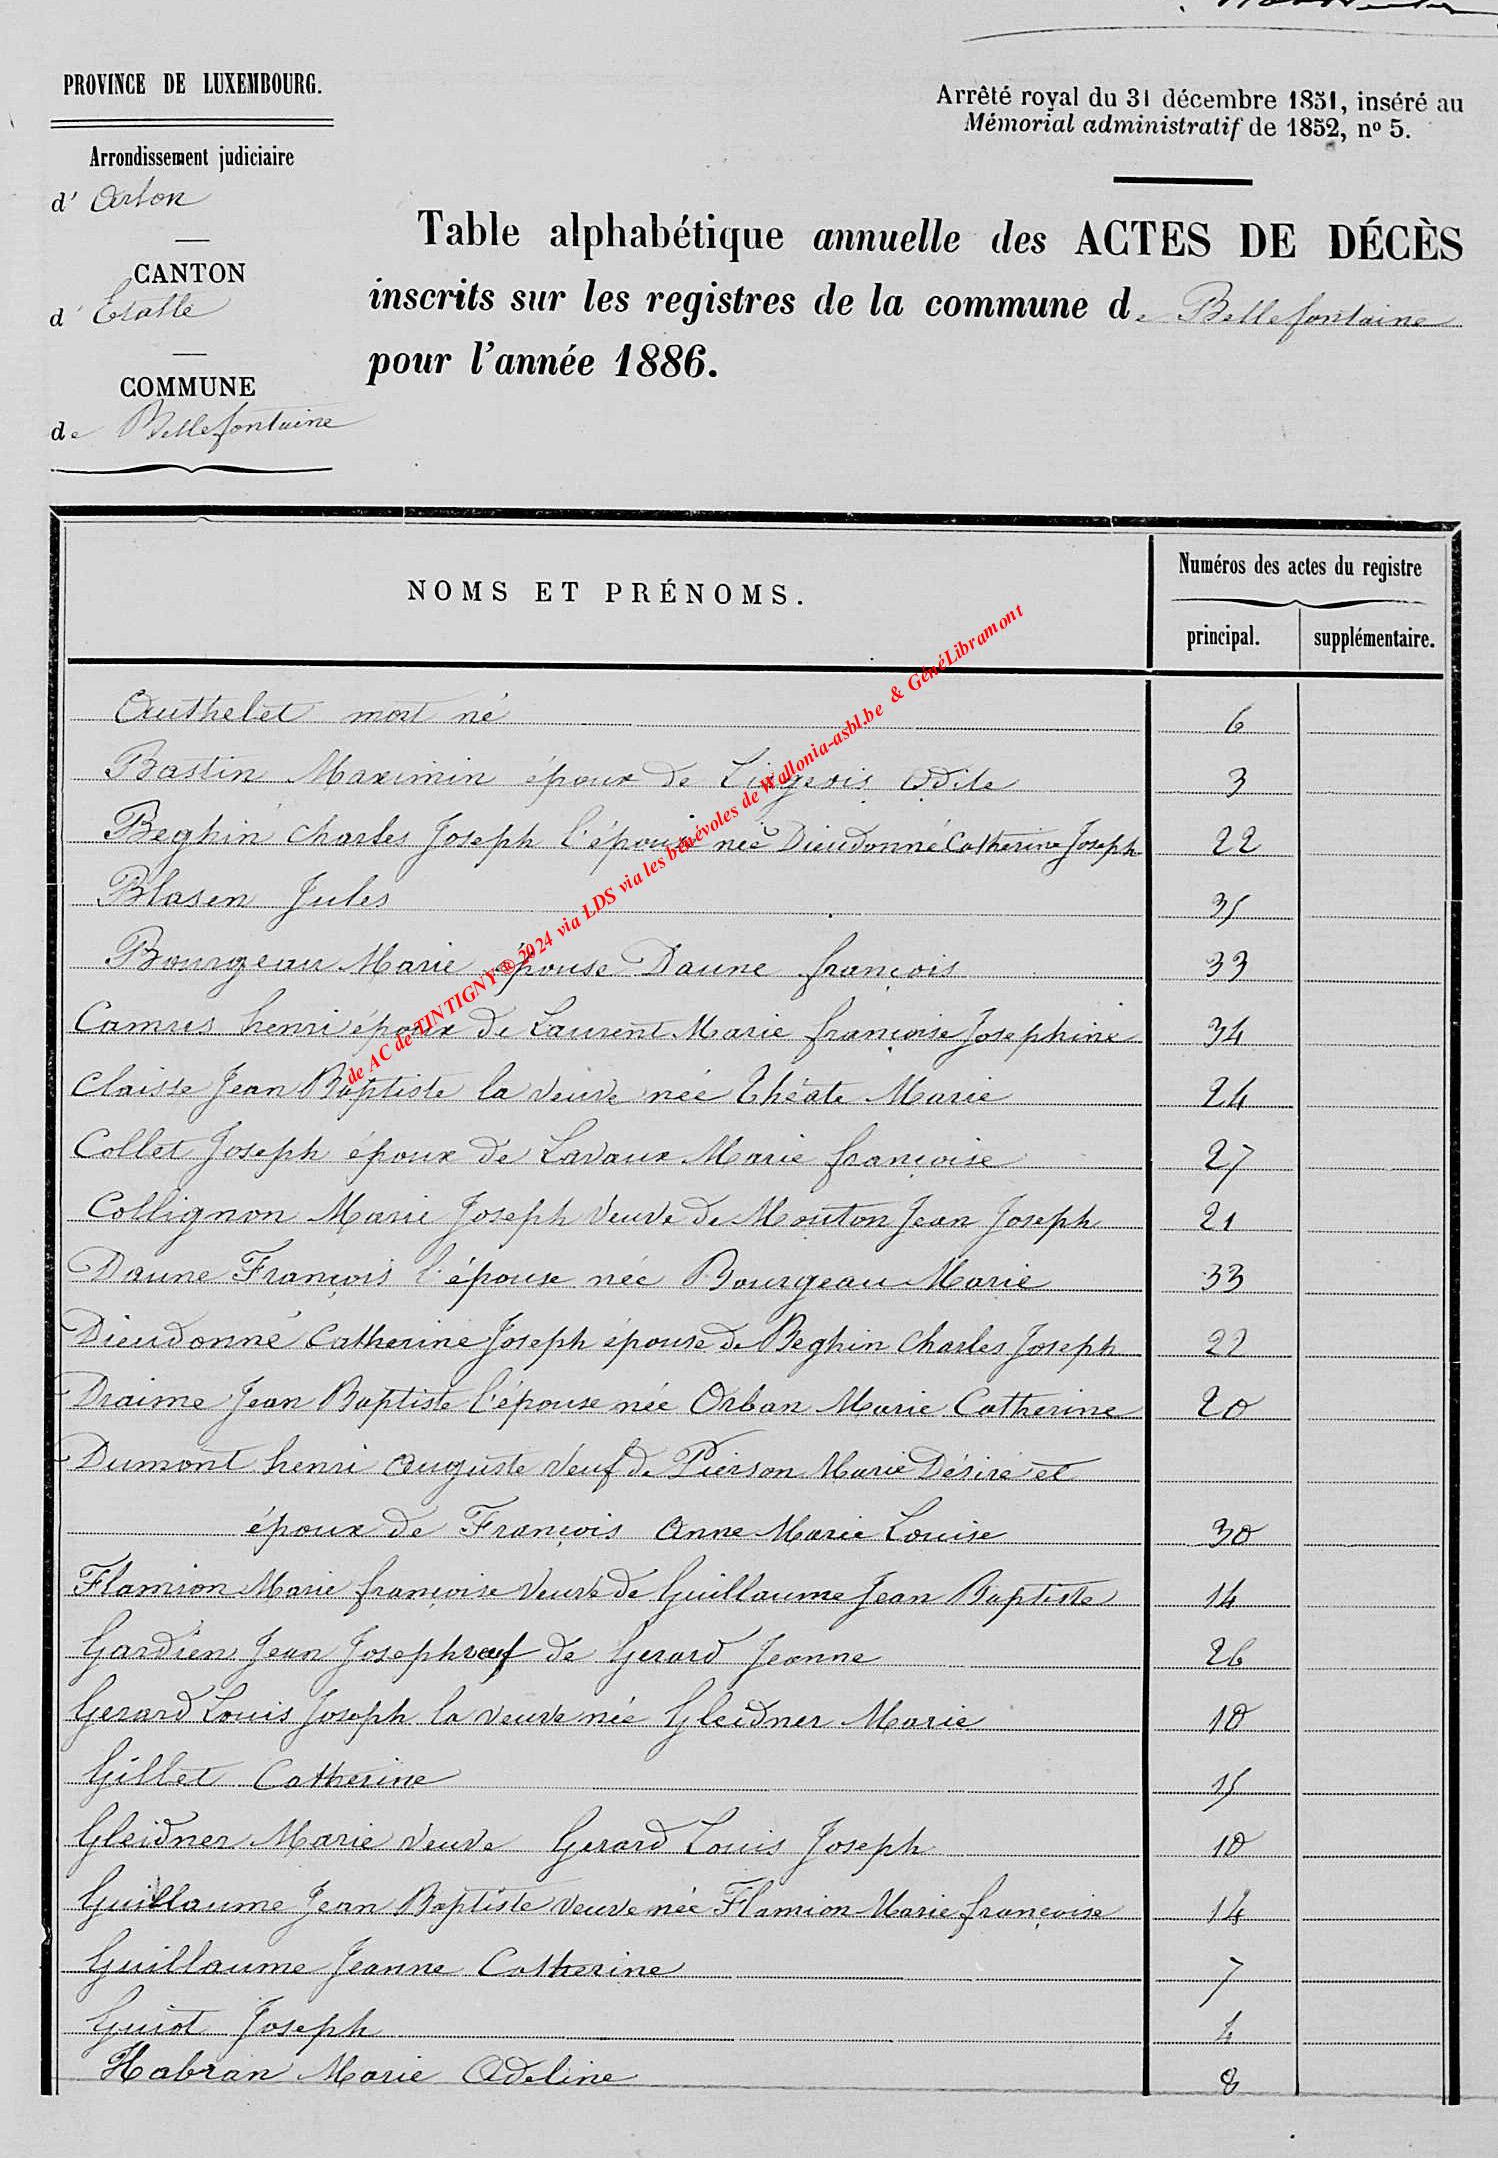 PROVINCE DE LUXEMBOURG.
Arrêté royal du 31 décembre 1851, inséré au
Mémorial administratif de 1852, nº 5.
Arrondissement judiciaire
d' Arlon
CANTON
d' Etalle
COMMUNE
de Bellefontaine
Table alphabétique annuelle des ACTES DE DÉCÈS
inscrits sur les registres de la commune de Bellefontaine
pour l'année 1886.
NOMS ET PRÉNOMS.
Numéros des actes du registre
principal. supplémentaire.
Authelet mort né 6
Bastin Maximin époux de Liégeois Odile 3
Beghin Charles Joseph l'épouse née Dieudonné Catherine Joseph 22
Blasen Jules 35
Bourgeau Marie épouse Daune françois 33
Camus henri époux de Laurent Marie françoise Josephine 34
Claisse Jean Baptiste la veuve née Théate Marie 24
Collet Joseph époux de Lavaux Marie françoise 27
Collignon Marie Joseph veuve de Mouton Jean Joseph 21
Daune François l'épouse née Bourgeau Marie 33
Dieudonné Catherine Joseph épouse de Beghin Charles Joseph 22
Draime Jean Baptiste l'épouse née Orban Marie Catherine 20
Dumont henri Auguste veuf de Pierson Marie Désiré et
époux de François Anne Marie Louise 30
Flamion Marie françoise veuve de Guillaume Jean Baptiste 14
Gardien Jean Joseph veuf de Gerard Jeanne 26
Gerard Louis Joseph la veuve née Gleidner Marie 10
Gillet Catherine 15
Gleidner Marie veuve Gerard Louis Joseph 10
Guillaume Jean Baptiste veuve née Flamion Marie françoise 14
Guillaume Jeanne Catherine 7
Guiot Joseph 4
Habran Marie Adeline 8
de AC de TINTIGNY® 2024 via LDS via les bénévoles de Wallonia-asbl.be & GénéLibramont